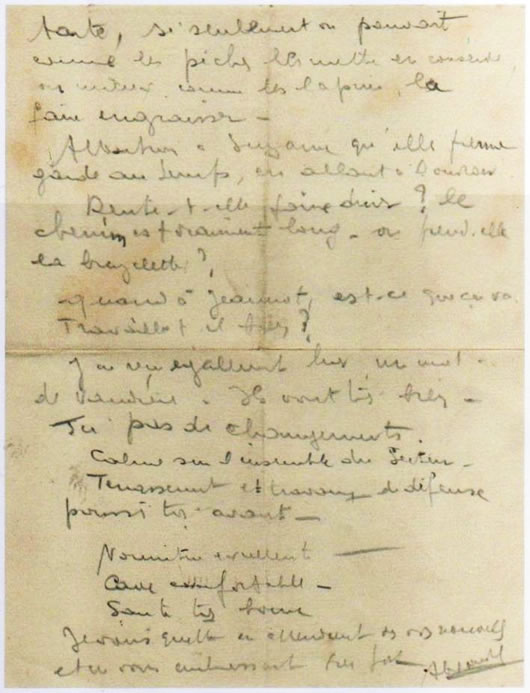 tante, si seulement on pouvait
comme les pêches les mettre en conserve
ou mieux comme les lapins, la
faire engraisser -
Attention à Suzanne qu'elle prenne
garde au temps, en allant à
Rente-t-elle dîner ? le
chemin est vraiment long - ou prend-elle
la bicyclette ?
quand à Jeannot, est-ce que ça va.
Travaille t il bien ?
J'ai reçu également hier un mot
de . Ils vont très bien -
Ici pas de changements.
Calme sur l'ensemble du secteur -
Terrassement et travaux de défense
poussés très avant -
Nourriture excellente -
Cave confortable -
Santé très bonne
Je vous quitte en attendant de vos nouvelles
et en vous embrassant très fort